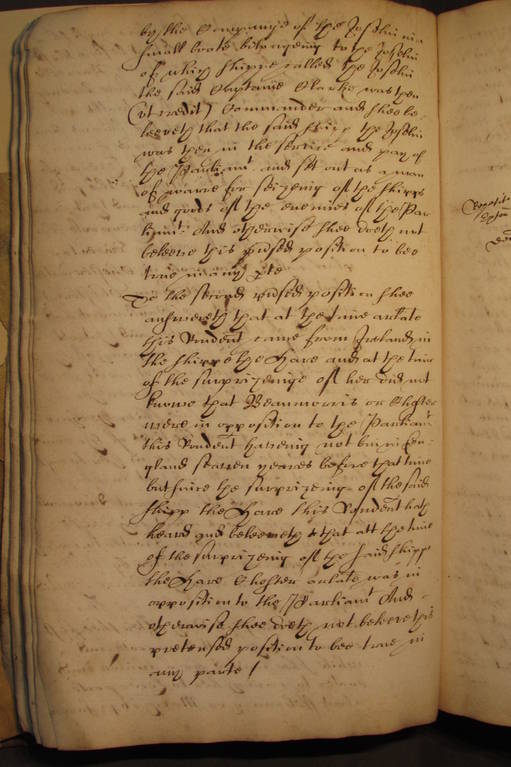 by the Companye of the Joslin in a
small boate belongeing to the Joslin
of which shippe called the Joslin
the said Captaine Clarke was then
(ut credit) Commander and shee be
leeveth that the said shipp the Joslin
was then in the service and pay of
the Parliamt. and set out as a man
of warre for seizeing of the shipps
and goods of the enemies of the Par
liamt. And otherwise shee doth not
beleeve this prtsed position to bee
true in any pte
To the second prtsed position shee
answereth that at the time arlate
this Rendent came from Ireland in
the shippe the Hare and at the time
of the surprizeinge of her did not
knowe that Beaumorris or Chester
were in opposition to the Parliamt.
this Rendent haveing not bin in Eng
gland seaven yeares before that time
but since the surprizeing of the said
shipp the Hare this Rendent hath
heard and beleeveth that att the time
of the surprizeing of the said shipp
the Hare Chester arlate was in
opposition to the Parliamt And
otherwise shee doth not beleeve this
pretensed position to bee true in
any parte /